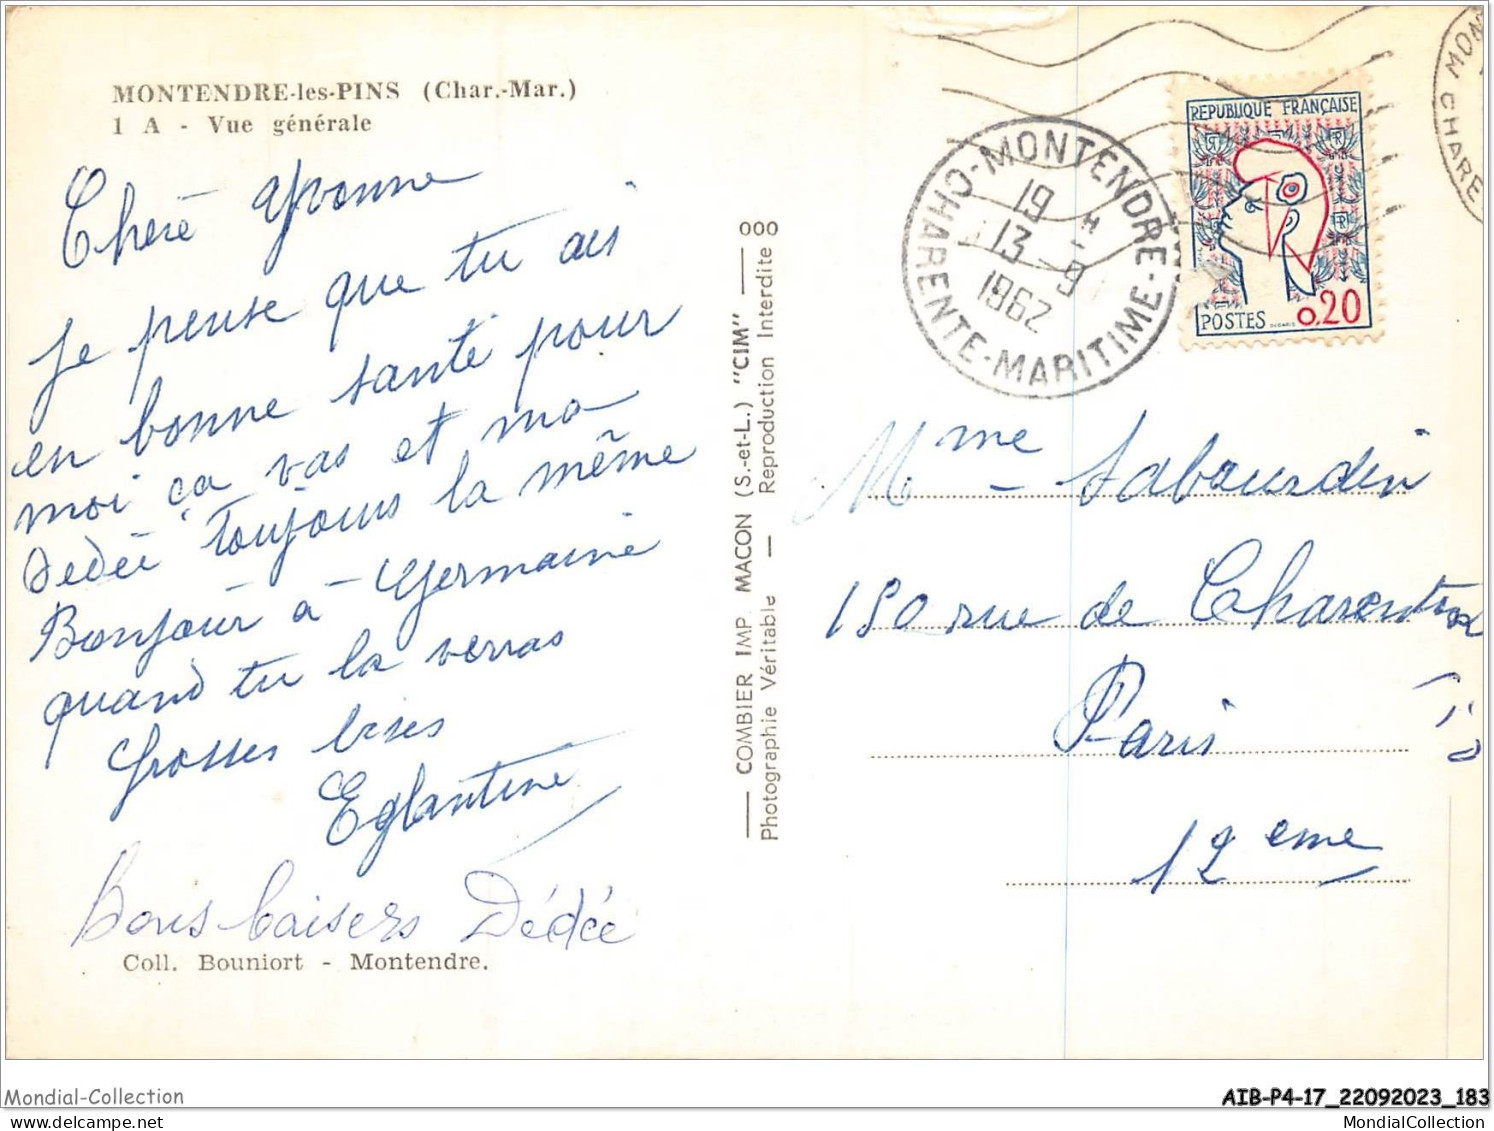 MONTENDRE-les-PINS (Char.-Mar.)
1 A - Vue générale
Chère Yvonne
je pense que tu ais
en bonne santé pour
moi ça vas et ma
Dedée toujours la même
Bonjour à Germaine
quand tu la verras
Grosses bises
Eglantine
Bons baisers Dédée
Coll. Bouniort - Montendre.
000
COMBIER IMP MACON (S.-et-L.) "CIM"
Photographie Véritable — Reproduction Interdite
MONTENDRE
CHARENTE-MARITIME
19 H
13 - 9
1962
MON
CHARE
REPUBLIQUE FRANÇAISE
POSTES 0,20
Mme Sabourdin
180 rue de Charenton
Paris
12 eme
Mondial-Collection
AIB-P4-17_22092023_183
Mondial-Collection
MondialCollection